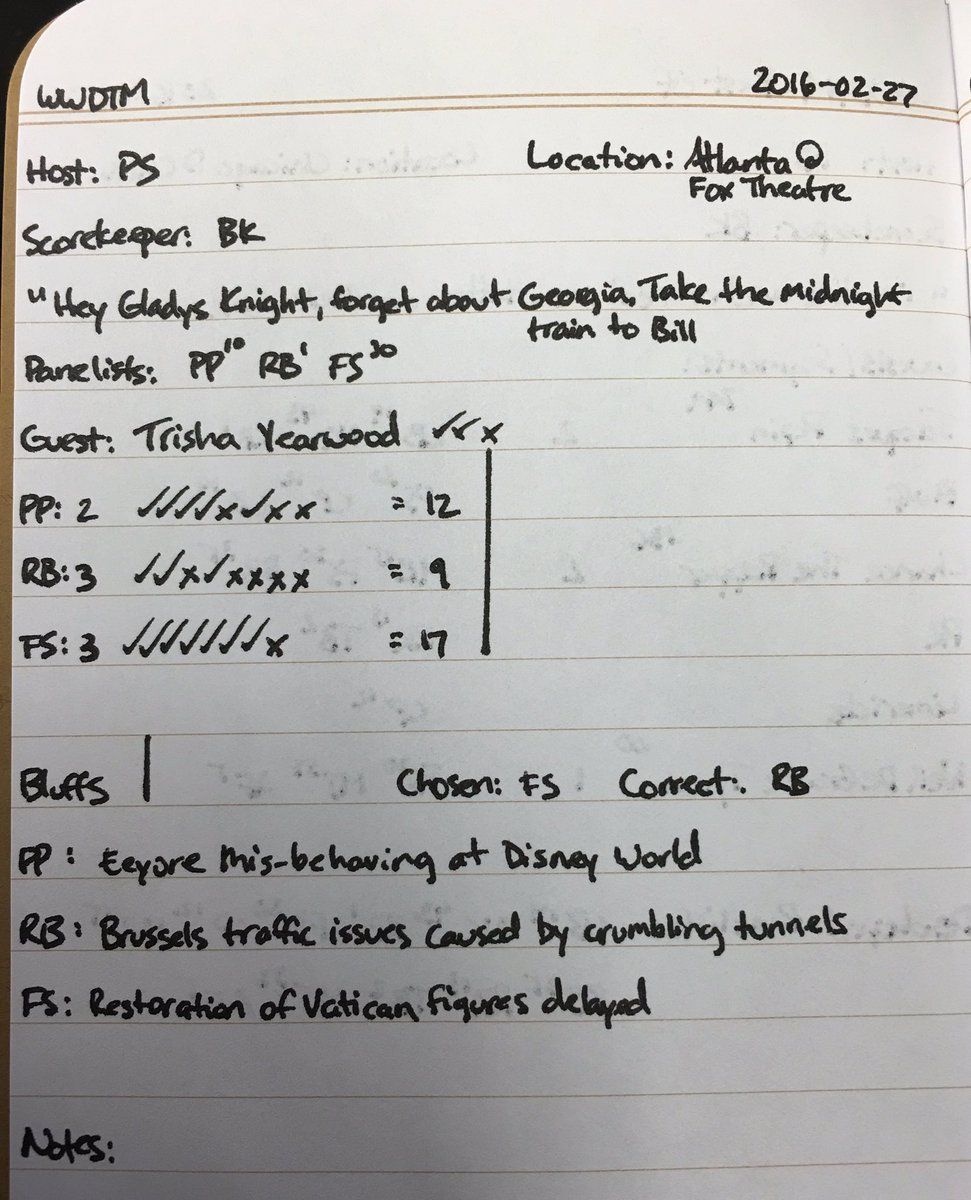 WWDTM 2016-02-27
Host: PS Location: Atlanta @
Fox Theatre
Scorekeeper: BK
"Hey Gladys Knight, forget about Georgia, Take the midnight
train to Bill
Panelists: PP¹⁰ RB¹ FS³⁰
Guest: Trisha Yearwood ✓✓x
PP: 2 ✓✓✓✓x✓xx = 12
RB: 3 ✓✓x✓xxxx = 9
FS: 3 ✓✓✓✓✓✓✓x = 17
Bluffs Chosen: FS Correct: RB
PP: Eeyore mis-behaving at Disney World
RB: Brussels traffic issues caused by crumbling tunnels
FS: Restoration of Vatican figures delayed
Notes: